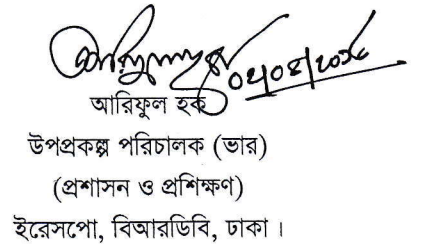 আরিফুল হক
উপপ্রকল্প পরিচালক (ভার)
(প্রশাসন ও প্রশিক্ষণ)
ইরেসপো, বিআরডিবি, ঢাকা।